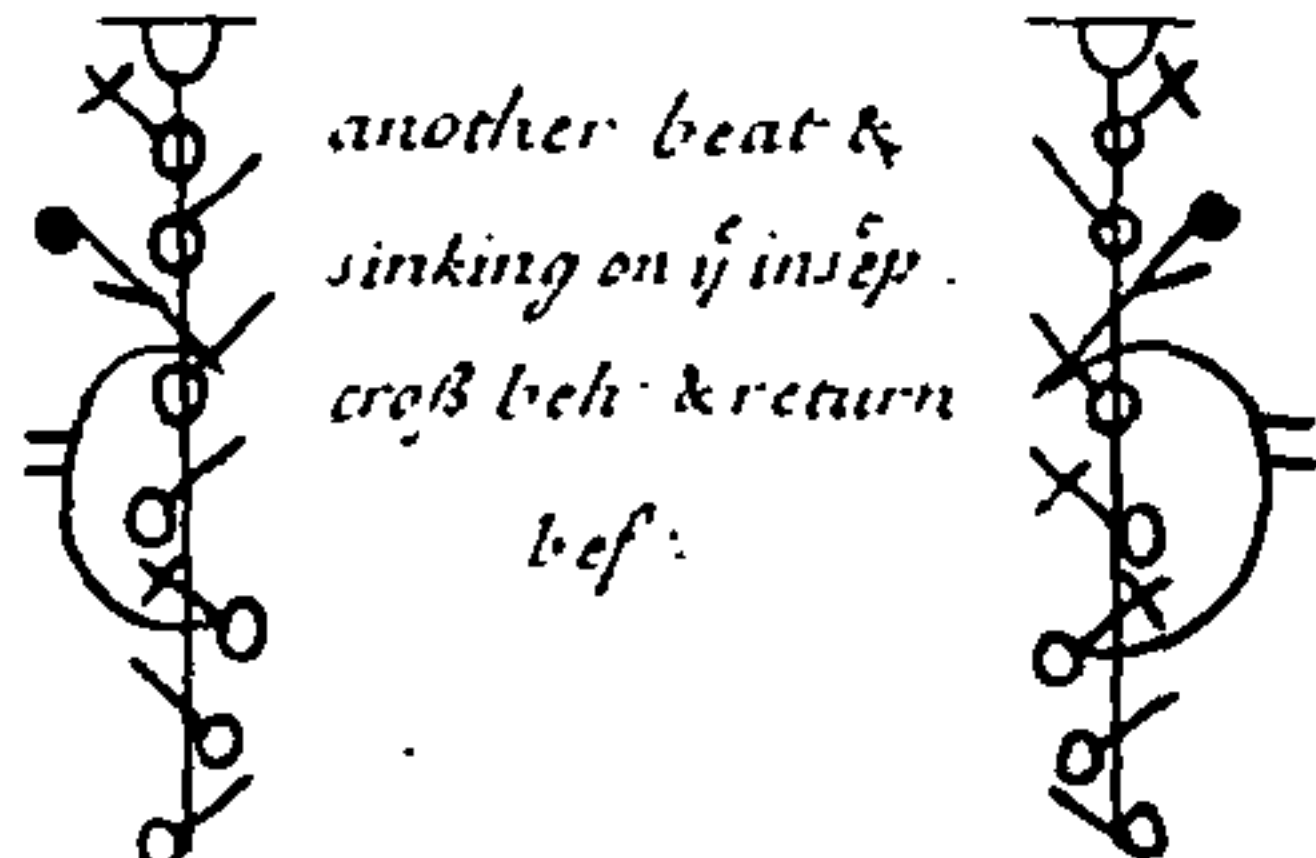 another beat &
sinking on yͤ insͤep.
croß beh: & return
bef: